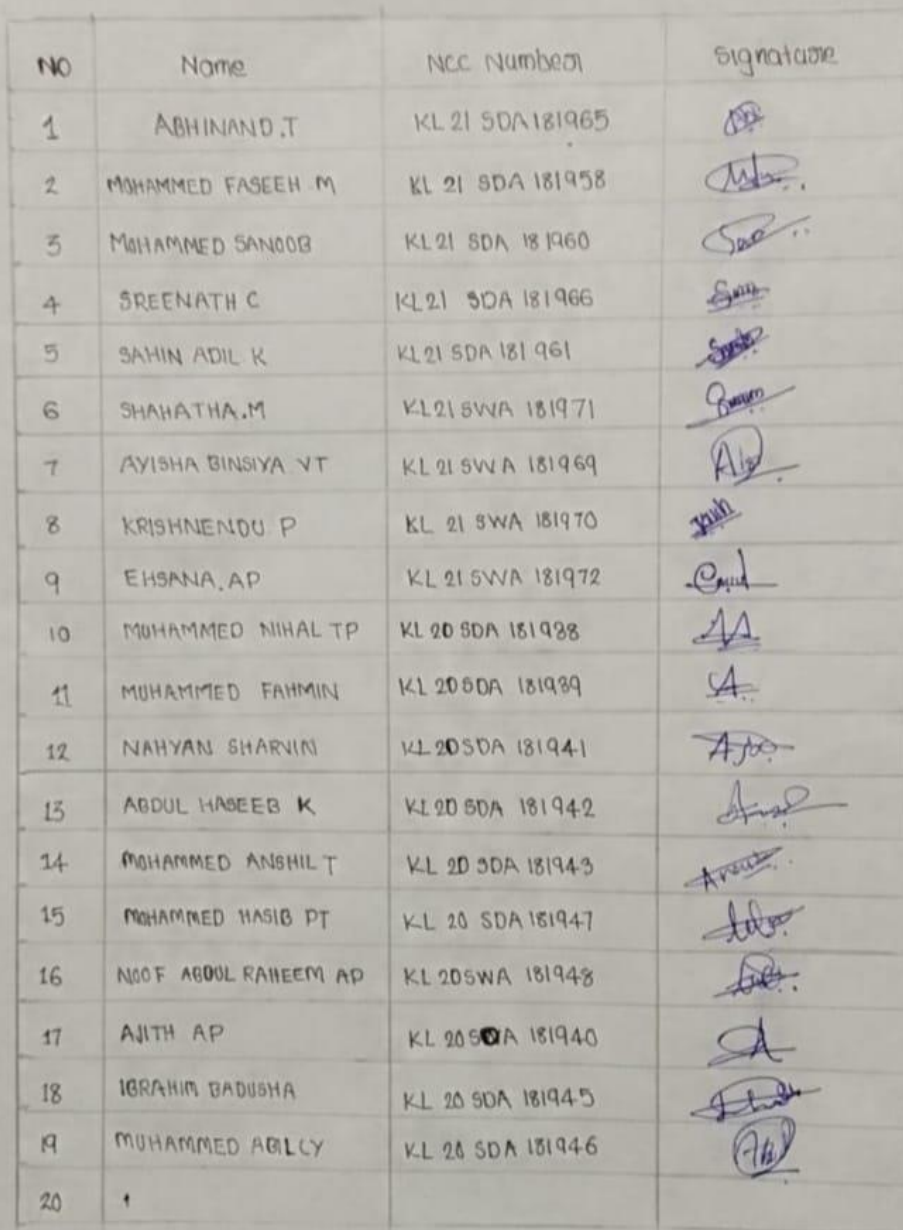 NO Name NCC Number Signature
1 ABHINAND.T KL 21 SDA 181965
2 MOHAMMED FASEEH M KL 21 SDA 181958
3 MOHAMMED SANOOB KL 21 SDA 181960
4 SREENATH C KL 21 SDA 181966
5 SAHIN ADIL K KL 21 SDA 181961
6 SHAHATHA.M KL 21 SWA 181971
7 AYISHA BINSIYA VT KL 21 SWA 181969
8 KRISHNENDU P KL 21 SWA 181970
9 EHSANA.AP KL 21 SWA 181972
10 MUHAMMED NIHAL TP KL 20 SDA 181938
11 MUHAMMED FAHMIN KL 20 SDA 181939
12 NAHYAN SHARVIN KL 20 SDA 181941
13 ABDUL HASEEB K KL 20 SDA 181942
14 MOHAMMED ANSHIL T KL 20 SDA 181943
15 MOHAMMED HASIB PT KL 20 SDA 181947
16 NOOF ABDUL RAHEEM AP KL 20 SWA 181948
17 AJITH AP KL 20 SDA 181940
18 IBRAHIM BADUSHA KL 20 SDA 181945
19 MUHAMMED KL 20 SDA 181946
20